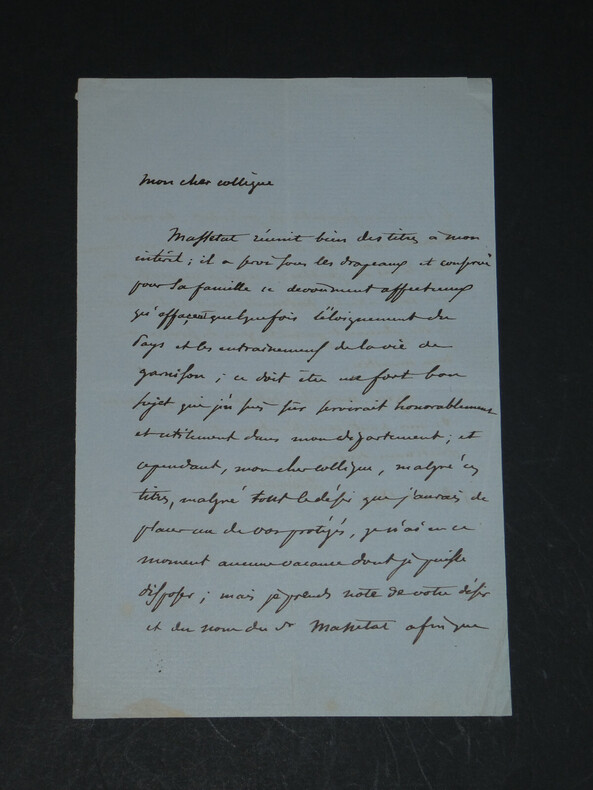 mon cher collègue
Massetat réunit bien des titres à mon
intérêt ; il a servi sous les drapeaux et conservé
pour sa famille ce dévouement affectueux
qu'effacent quelquefois l'éloignement du
Pays et les entrainements de la vie de
garnison ; ce doit être un fort bon
sujet que j'en suis sûr servirait honorablement
et utilement dans mon département ; et
cependant, mon cher collègue, malgré ces
titres, malgré tout le désir que j'aurais de
placer un de vos protégés, je n'ai en ce
moment aucune vacance dont je puisse
disposer ; mais je prends note de votre désir
et du nom du Sr Massetat afin que